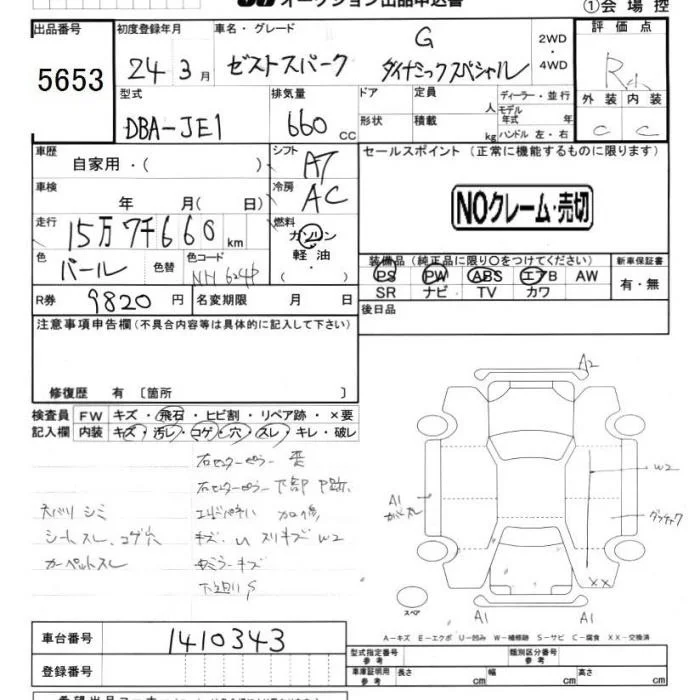 オークション出品申込書
①会場控
出品番号
5653
初度登録年月
24年3月
車名・グレード
ゼストスパーク
G
ダイナミックスペシャル
2WD
・
4WD
評価点
外装 内装
C C
型式
DBA-JE1
排気量
660 CC
ドア
形状
定員 人
積載 kg
ディーラー・並行
モデル
年式 年
ハンドル 左・右
車歴
自家用・( )
シフト
AT
車検
年 月( 日)
冷房
AC
走行
15万7千660 km
燃料
ガソリン
軽油
・( )
色
パール
色替
色コード
NH624P
R券
9820 円
名変期限 月 日
セールスポイント (正常に機能するものに限ります)
NOクレーム・売切
装備品 (純正品に限り○をつけてください)
PS PW ABS エアB AW
SR ナビ TV カワ
新車保証書
有・無
後日品
注意事項申告欄(不具合内容等は具体的に記入して下さい)
修復歴 有 〔箇所 〕
検査員
記入欄
FW キズ・飛石・ヒビ割・リペア跡・×要
内装 キズ・汚レ・コゲ・穴・スレ・キレ・破レ
右センターピラー
右センターピラー下部
シミ
シートスレ、コゲ穴
キズ、U スリキズ W2
カーペットスレ
キズ
下廻りS
A2
W2
A1
XX
スペア
A1
A1
A-キズ E-エクボ U-凹み W-補修跡 S-サビ C-腐食 XX-交換済
車台番号
1410343
登録番号
型式指定番号
参考
類別区分番号
参考
車庫証明用
参考
長さ cm
幅 cm
高さ cm